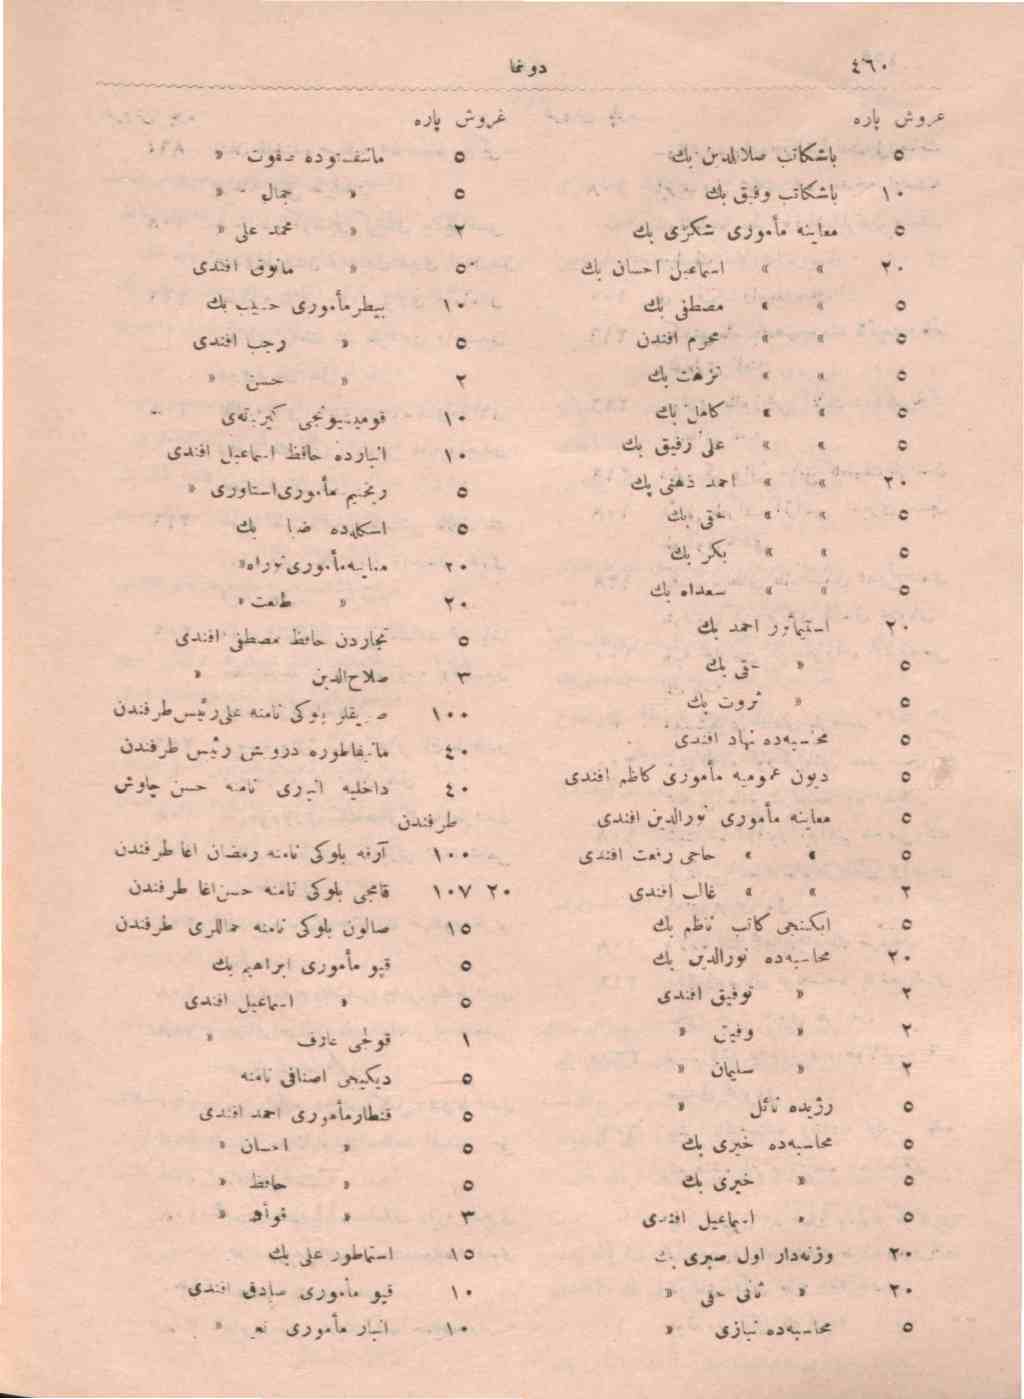 ٤٦٠
دونما
غروش پاره
٥ باشكاتب صلاالدين بك
١٠ باشكاتب وفيق بك
٥ معاينه مأمورى شكرى بك
٢٠ » » اسماعيل احسان بك
٥ » » مصطفى بك
٥ » » محرم افندى
٥ » » نزهت بك
٥ » » كامل بك
٥ » » على رفيق بك
٢٠ » » احمد ذهنى بك
٥ » » حقى بك
٥ » » بكر بك
٥ » » سعدالله بك
٢٠ احمد بك
٥ » حقى بك
٥ » ثروت بك
٥ محاسبه‌ده نهاد افندى
٥ ديون عموميه مأمورى كاظم افندى
٥ معاينه مأمورى نورالدين افندى
٥ » » حاجى رفعت افندى
٢ » » غالب افندى
٥ ايكنجى كاتب ناظم بك
٢٠ محاسبه‌ده نورالدين بك
٢ » توفيق افندى
٢ » وفيق »
٢ » سليمان »
٥ رژيده نائل »
٥ محاسبه‌ده خيرى بك
٥ » خيرى بك
٥ » اسماعيل افندى
٢٠ وزنه‌دار اول صبرى بك
٢٠ » ثانى حقى »
٥ محاسبه‌ده نيازى »
غروش پاره
٥ صفوت »
٥ » جمال »
٢ » محمد على »
٥ » مانوق افندى
١٠ بيطر مأمورى حبيب بك
٥ » رجب افندى
٢ » حسن »
١٠ قوميسيونجى
١٠ انبارده حافظ اسماعيل افندى
٥ ريختيم مأمورى استاورى »
٥ اسكله‌ده ضيا بك
٢٠ معاينه مأمورى »
٢٠ » طلعت »
٥ تجاردن حافظ مصطفى افندى
٣ صلاح‌الدين »
١٠٠ بلوكى نامنه على رئيس طرفندن
٤٠ مانيفاطوره درويش رئيس طرفندن
٤٠ داخليه انبارى نامنه حسن چاوش
طرفندن
١٠٠ آرقه بلوكى نامنه رمضان اغا طرفندن
١٠٧ ٢٠ قامچى بلوكى نامنه حسن اغا طرفندن
١٥ صالون بلوكى نامنه حماللرى طرفندن
٥ قپو مأمورى ابراهيم بك
٥ » اسماعيل افندى
١ قولجى عارف »
٥ ديكيجى اصنافى نامنه
٥ قنطار مأمورى احمد افندى
٥ » احسان »
٥ » حافظ »
٣ » »
١٥ على بك
١٠ قپو مأمورى صادق افندى
١٠ انبار مأمورى »